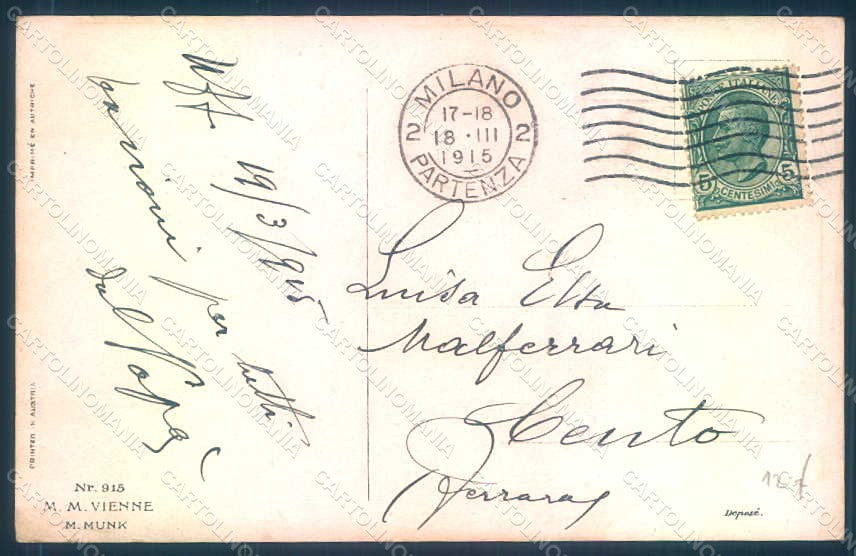 19/3/1915
per tutti
dal Papà
MILANO
2 17-18 2
18 · III
1915
PARTENZA
POSTE ITALIANE
5 5
CENTESIMI
Luisa Elsa
Malferrari
Cento
(Ferrara)
IMPRIMÉ EN AUTRICHE
PRINTED IN AUSTRIA
Nr. 915
M. M. VIENNE
M. MUNK
Deposé.
CARTOLINOMANIA